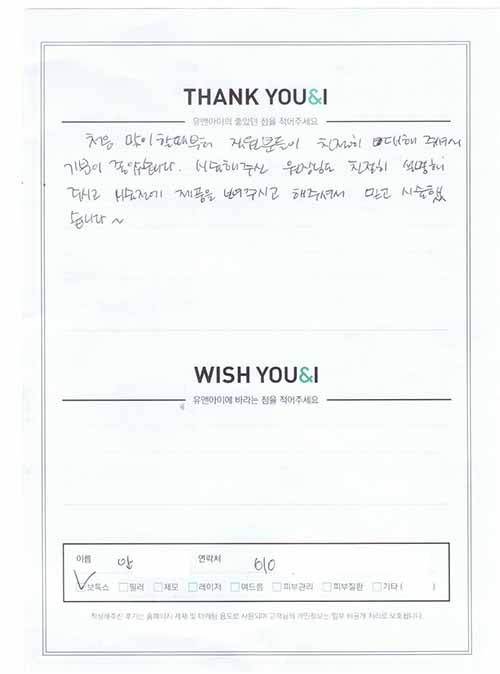 THANK YOU&I
유앤아이의 좋았던 점을 적어주세요
처음 맞이할때부터 직원분들이 친절히 응대해 주셔서
기분이 좋았습니다. 시술해주신 원장님도 친절히 설명해
주시고 시술전에 제품을 보여주시고 해주셔서 믿고 시술했
습니다~
WISH YOU&I
유앤아이에 바라는 점을 적어주세요
이름 안 연락처 610
보톡스 필러 제모 레이저 여드름 피부관리 피부질환 기타 ( )
작성해주신 후기는 홈페이지 게재 및 마케팅 용도로 사용되며 고객님의 개인정보는 일부 비공개 처리로 보호됩니다.